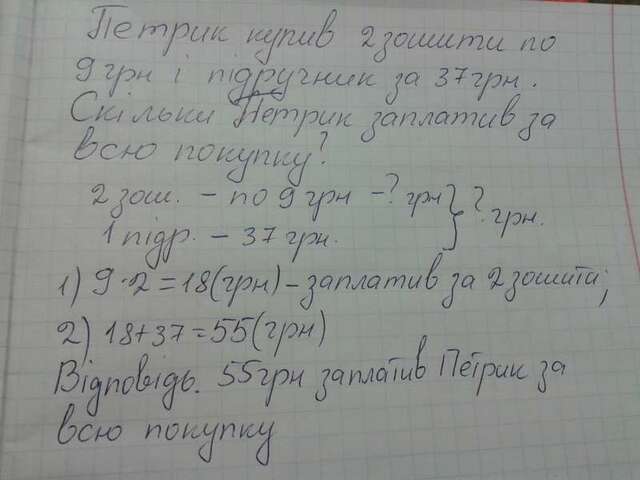 Петрик купив 2 зошити по
9 грн і підручник за 37 грн.
Скільки Петрик заплатив за
всю покупку?
2 зош. – по 9 грн –? грн } ? грн.
1 підр. – 37 грн.
1) 9·2=18(грн) – заплатив за 2 зошити;
2) 18+37=55(грн)
Відповідь. 55 грн заплатив Петрик за
всю покупку